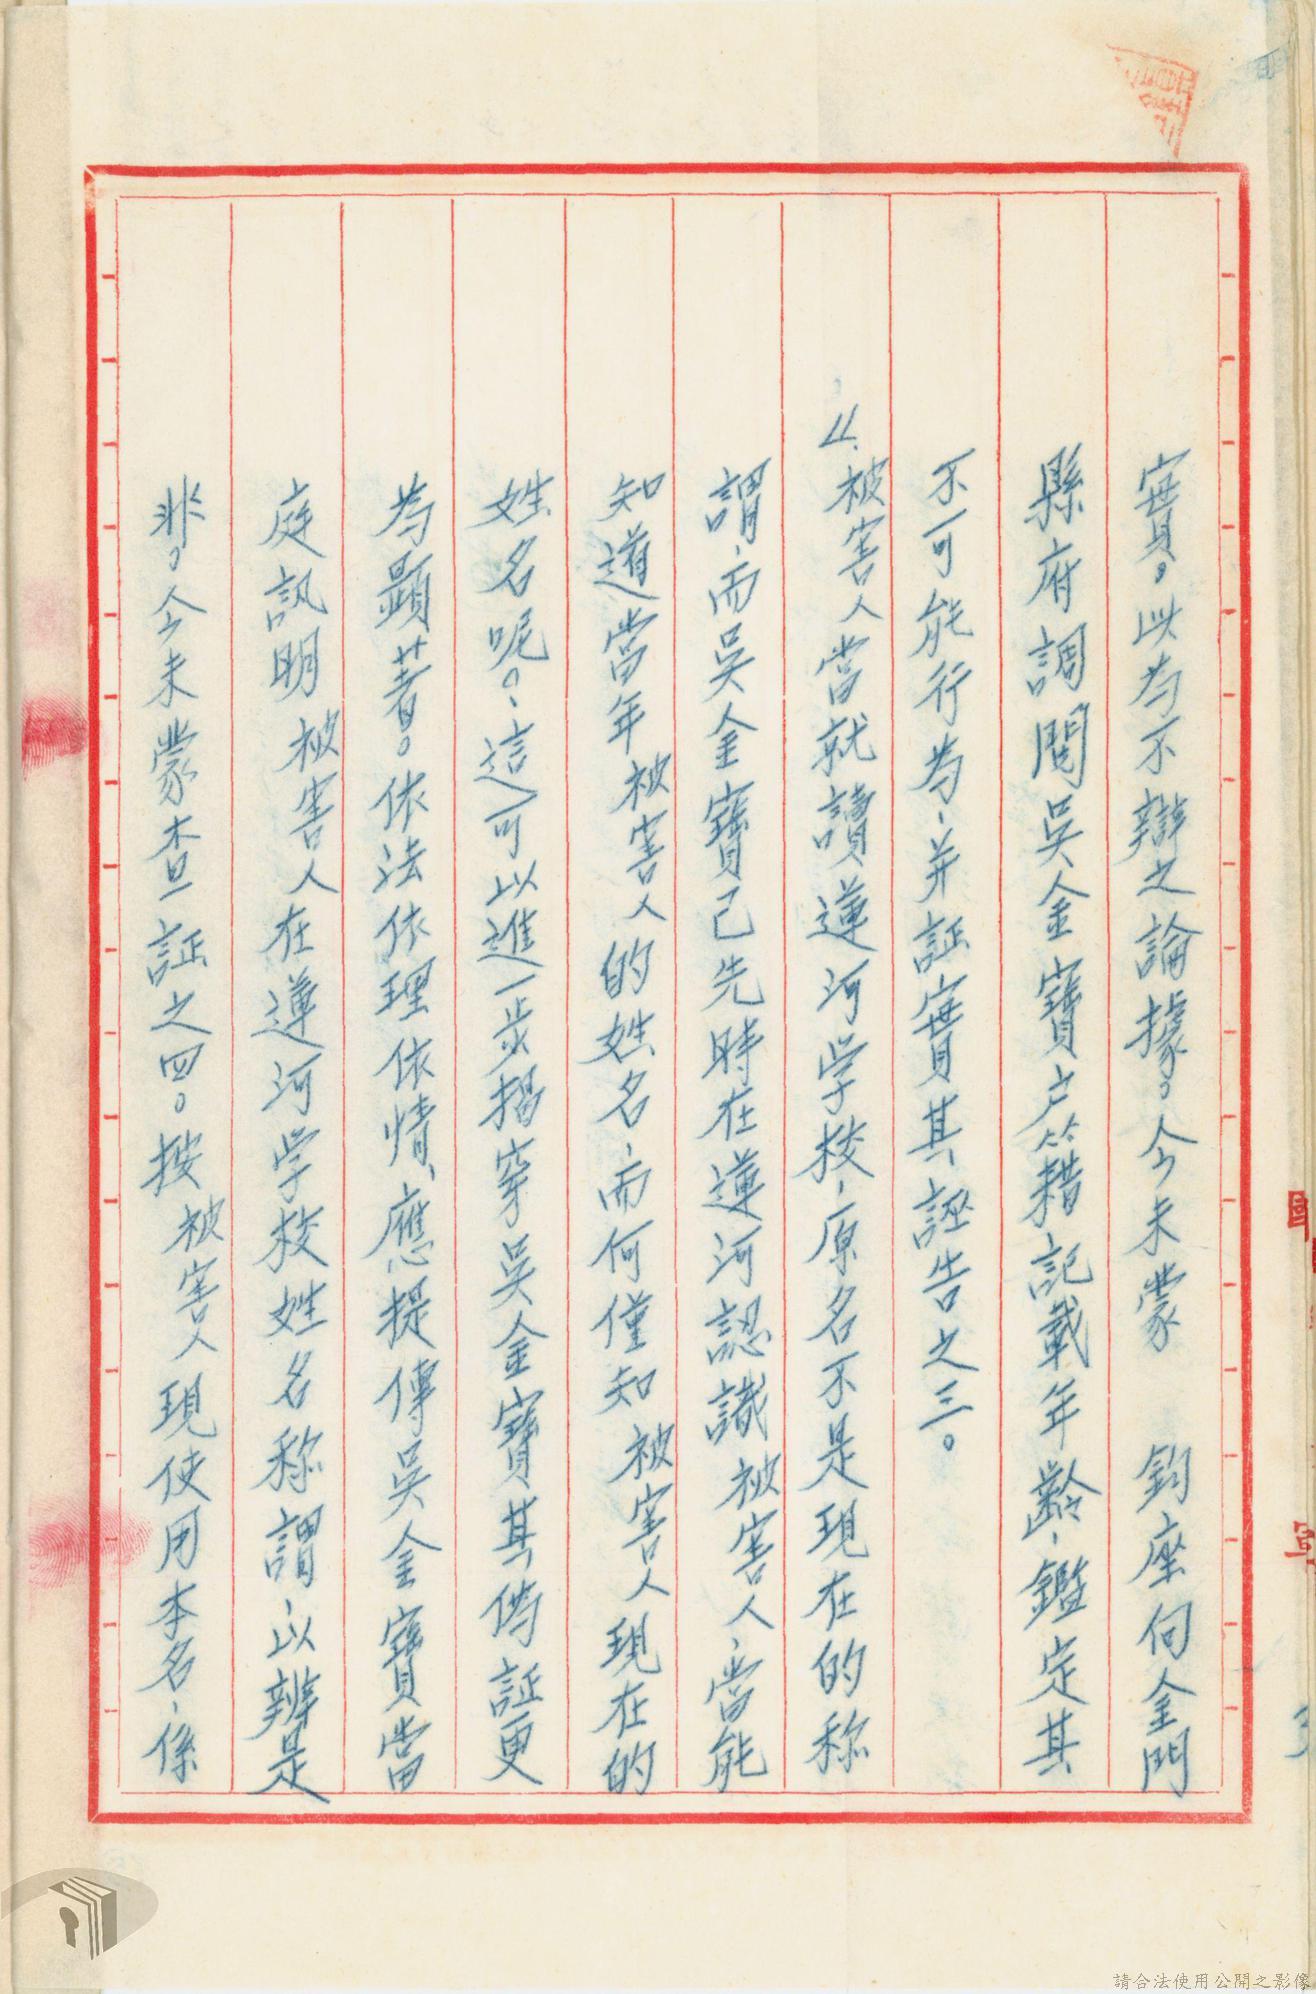 實。以為不辯之論據。今未蒙　鈞座向金門
縣府調閱吳金寶户籍記載年齡、鑑定其
不可能行為、并証實其誣告之三。
4.被害人當就讀蓮河学校、原名不是現在的称
謂、而吳金寶己先時在蓮河認識被害人、當能
知道當年被害人的姓名、而何僅知被害人現在的
姓名呢。、這可以進一步揭穿吳金寶其偽証更
為顯著。依法依理依情、應提傳吳金寶當
庭訊明被害人在蓮河学校姓名称謂、以辨是
非。今未蒙查証之四。按被害人現使用本名、係
請合法使用公開之影像